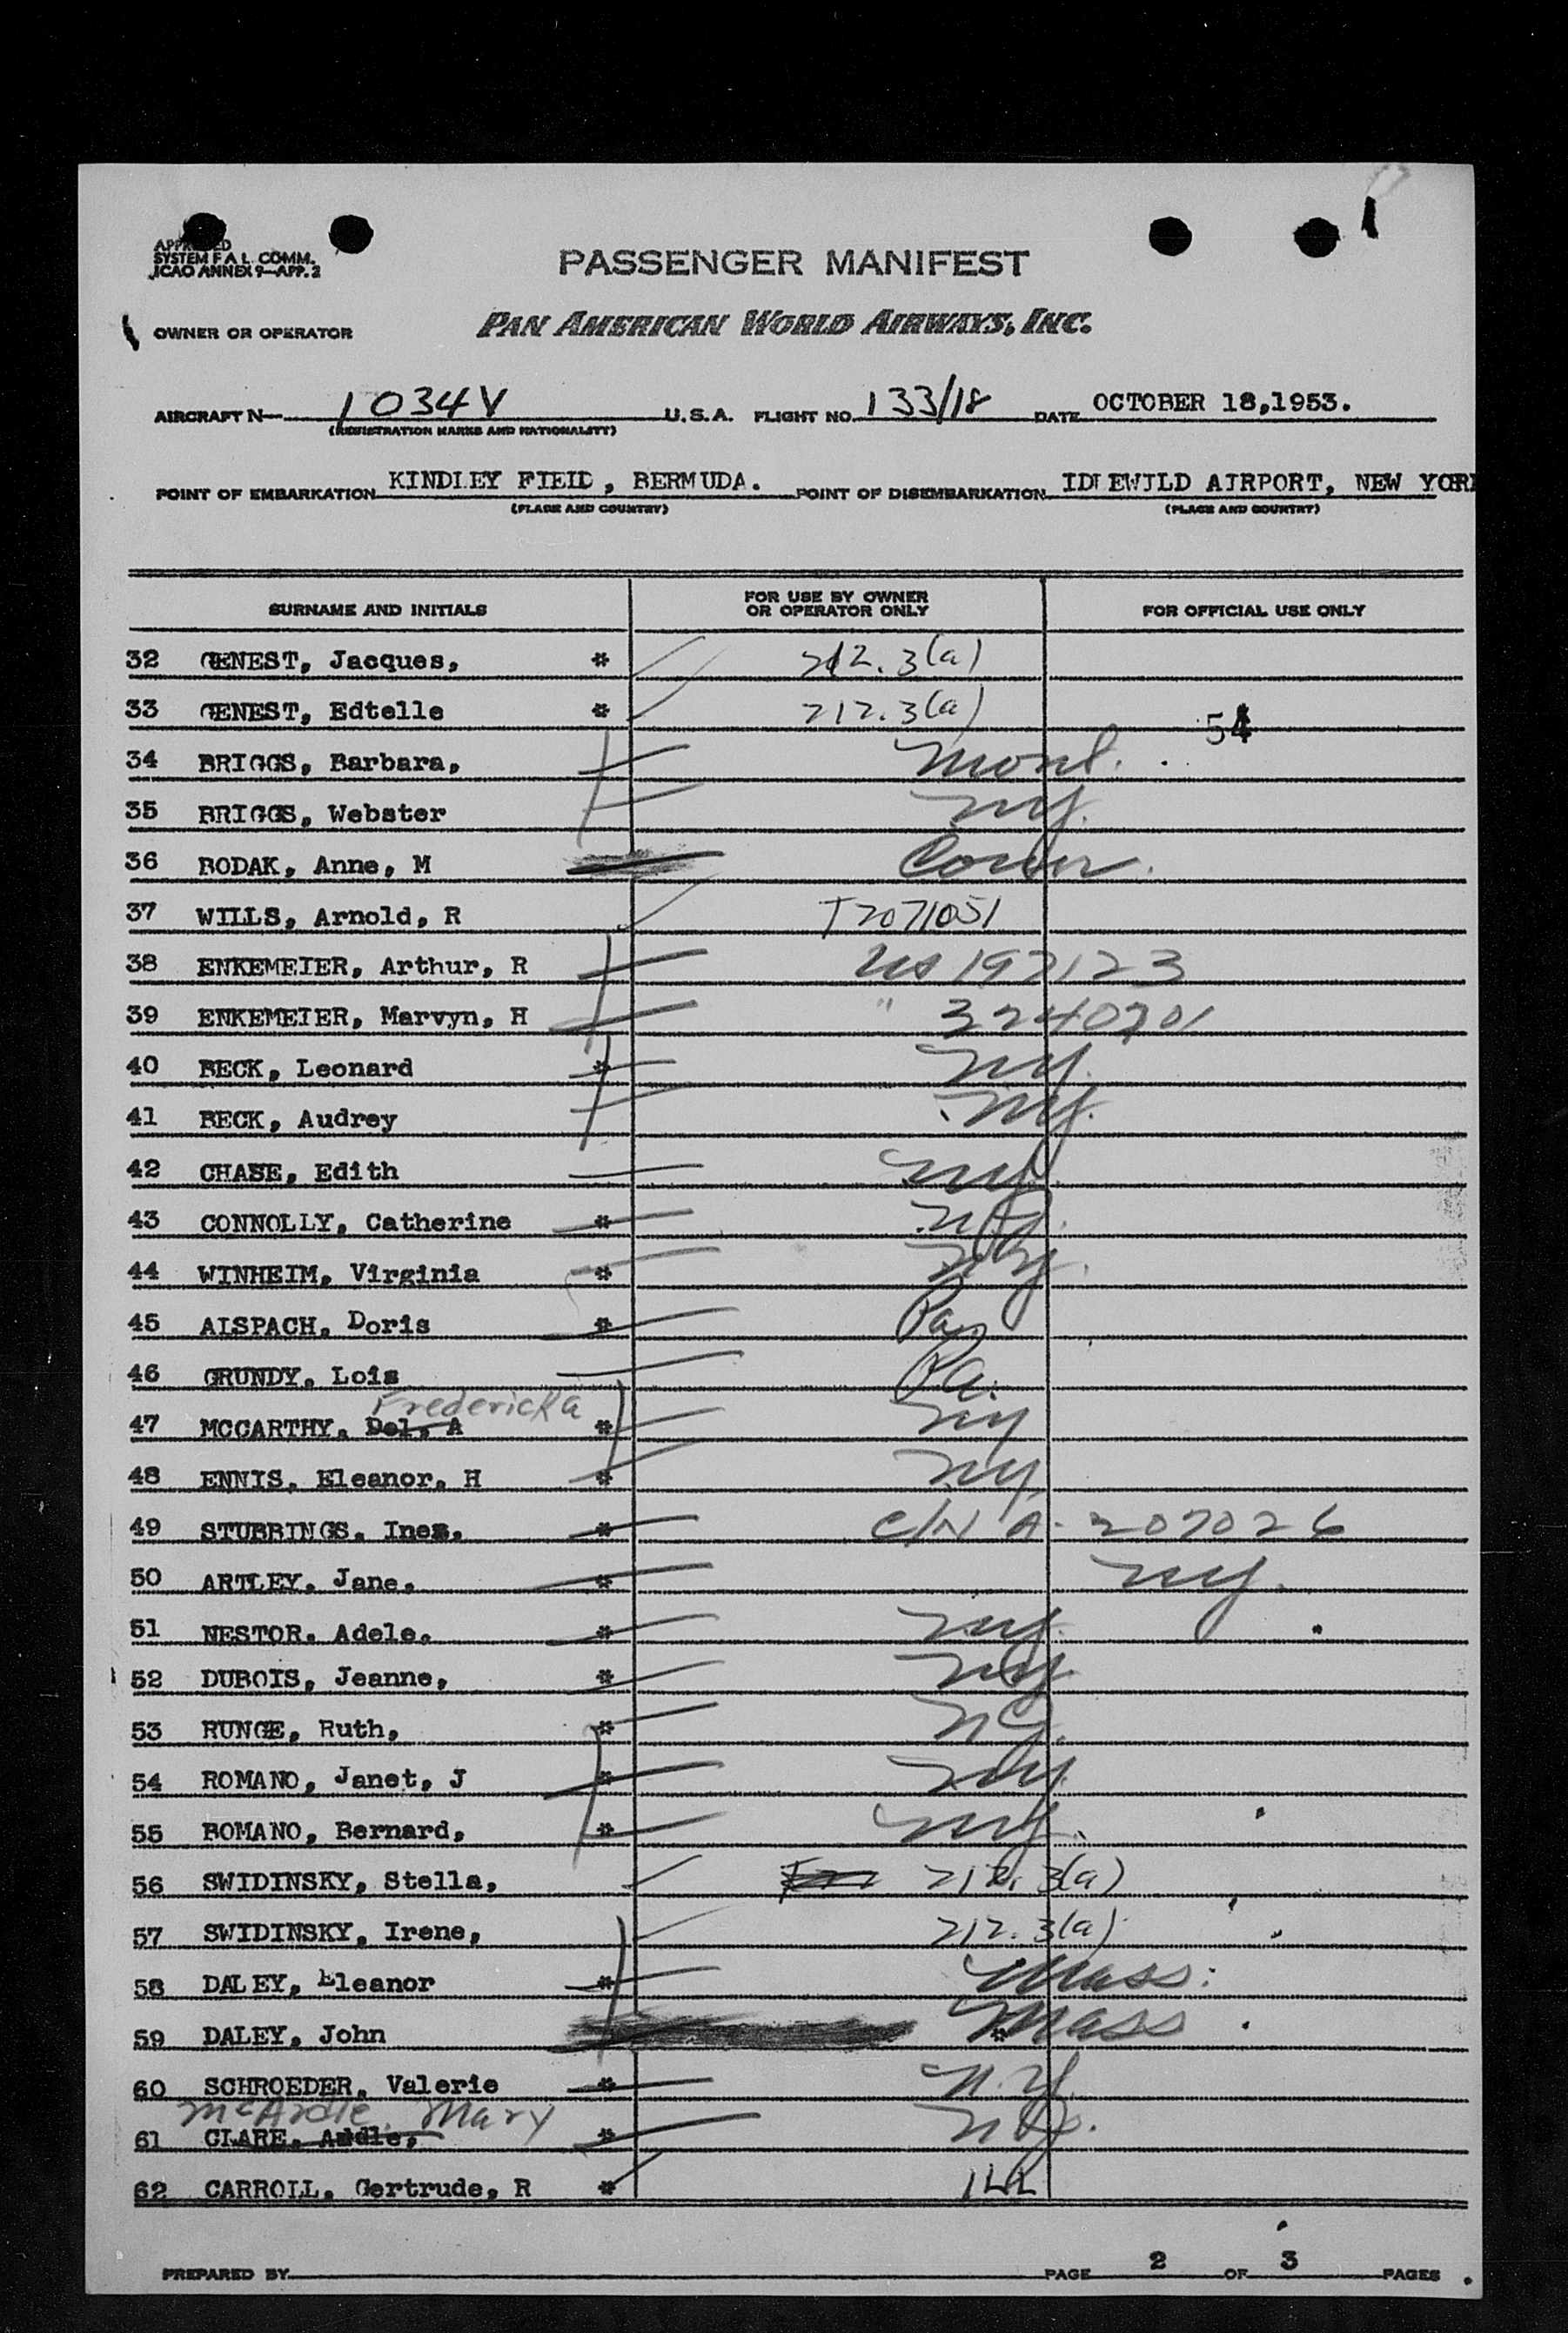 APPROVED
SYSTEM F A L COMM.
ICAO ANNEX 9—APP. 2
PASSENGER MANIFEST
OWNER OR OPERATOR PAN AMERICAN WORLD AIRWAYS, INC.
AIRCRAFT N— 1034V U.S.A. FLIGHT NO. 133/18 DATE OCTOBER 18,1953.
(REGISTRATION MARKS AND NATIONALITY)
POINT OF EMBARKATION KINDLEY FIELD, BERMUDA. POINT OF DISEMBARKATION IDLEWILD AIRPORT, NEW YORK
(PLACE AND COUNTRY) (PLACE AND COUNTRY)
SURNAME AND INITIALS FOR USE BY OWNER OR OPERATOR ONLY FOR OFFICIAL USE ONLY
32 GENEST, Jacques, * 212.3(a)
33 GENEST, Edtelle * 212.3(a) 54
34 BRIGGS, Barbara,
35 BRIGGS, Webster ny.
36 BODAK, Anne, M Conn.
37 WILLS, Arnold, R T2071051
38 ENKEMEIER, Arthur, R US 192123
39 ENKEMEIER, Marvyn, H "
40 BECK, Leonard * ny.
41 BECK, Audrey ny.
42 CHASE, Edith ny.
43 CONNOLLY, Catherine *
44 WINHEIM, Virginia * ny.
45 ALSPACH, Doris * Pa.
46 GRUNDY, Lois Pa.
Fredericka
47 MCCARTHY, Del, A * ny
48 ENNIS, Eleanor, H * ny.
49 STUBBINGS, Inez, * C/N A- 207026
50 ARTLEY, Jane, * ny.
51 NESTOR, Adele, * ny.
52 DUBOIS, Jeanne, * ny.
53 RUNGE, Ruth, *
54 ROMANO, Janet, J * ny.
55 ROMANO, Bernard, * ny.
56 SWIDINSKY, Stella, 212.3(a)
57 SWIDINSKY, Irene, 212.3(a)
58 DALEY, Eleanor * Mass.
59 DALEY, John * Mass
60 SCHROEDER, Valerie * N.Y.
McArdle, Mary
61 CLARE, Addle, *
62 CARROLL, Gertrude, R * ILL
PREPARED BY PAGE 2 OF 3 PAGES